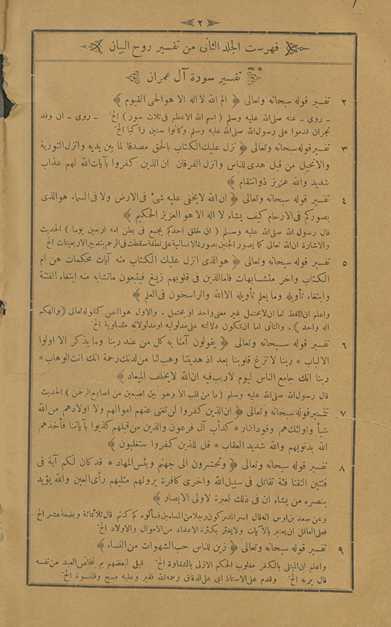 ﴿ ٢ ﴾
فهرست الجلد الثانى من تفسير روح البيان
تفسير سورة آل عمران
٢ تفسير قوله سبحانه وتعالى ﴿ الم الله لا اله الا هو الحى القيوم ﴾
روى عنه صلى الله عليه وسلم ( اسم الله الاعظم فى ثلاث سور ) الخ روى ان وفد
نجران قدموا على رسول الله صلى الله عليه وسلم وكانوا ستين راكبا الخ
٣ تفسير قوله سبحانه وتعالى ﴿ نزل عليك الكتاب بالحق مصدقا لما بين يديه وانزل التورية
والانجيل من قبل هدى للناس وانزل الفرقان ان الذين كفروا بآيات الله لهم عذاب
شديد والله عزيز ذو انتقام ﴾
٤ تفسير قوله سبحانه وتعالى ﴿ ان الله لا يخفى عليه شئ فى الارض ولا فى السماء هو الذى
يصوركم فى الارحام كيف يشاء لا اله الا هو العزيز الحكيم ﴾
قال رسول الله صلى الله عليه وسلم ( ان خلق احدكم يجمع فى بطن امه اربعين يوما ) الحديث
والاشارة ان الله تعالى كما يصور الجنين بصورة الانسانية على نطفة سقطت فى الرحم الخ
٥ تفسير قوله سبحانه وتعالى ﴿ هو الذى انزل عليك الكتاب منه آيات محكمات هن ام
الكتاب واخر متشابهات فاما الذين فى قلوبهم زيغ فيتبعون ما تشابه منه ابتغاء الفتنة
وابتغاء تأويله وما يعلم تأويله الا الله والراسخون فى العلم ﴾
واعلم ان اللفظ اما ان لا يحتمل غير معنى واحد او يحتمل والاول هو النص كقوله تعالى ( والهكم
اله واحد ) والثانى اما ان تكون دلالته على مدلوليه او مدلولاته متساوية الخ
٦ تفسير قوله سبحانه وتعالى ﴿ يقولون آمنا به كل من عند ربنا وما يذكر الا اولوا
الالباب ٭ ربنا لا تزغ قلوبنا بعد اذ هديتنا وهب لنا من لدنك رحمة انك انت الوهاب ٭
ربنا انك جامع الناس ليوم لا ريب فيه ان الله لا يخلف الميعاد ﴾
قال رسول الله صلى الله عليه وسلم ( ما من قلب الا وهو بين اصبعين من اصابع الرحمن ) الحديث
٧ تفسير قوله سبحانه وتعالى ﴿ ان الذين كفروا لن تغنى عنهم اموالهم ولا اولادهم من الله
شيأ واولئك هم وقود النار ٭ كدأب آل فرعون والذين من قبلهم كذبوا بآياتنا فأخذهم
الله بذنوبهم والله شديد العقاب ٭ قل للذين كفروا ستغلبون ﴾
٨ تفسير قوله سبحانه وتعالى ﴿ وتحشرون الى جهنم وبئس المهاد ٭ قد كان لكم آية فى
فئتين التقتا فئة تقاتل فى سبيل الله واخرى كافرة يرونهم مثليهم رأى العين والله يؤيد
بنصره من يشاء ان فى ذلك لعبرة لاولى الابصار ﴾
فعلى العاقل ان يعتبر بالآيات ولا يغتر بكثرة الاعداد من الاموال والاولاد الخ
٩ تفسير قوله سبحانه وتعالى ﴿ زين للناس حب الشهوات من النساء ﴾